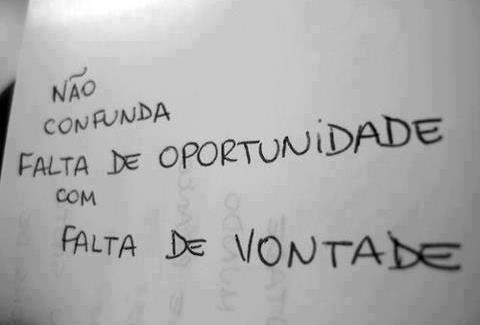 NÃO
CONFUNDA
FALTA DE OPORTUNiDADE
COM
FALTA DE VONTADE